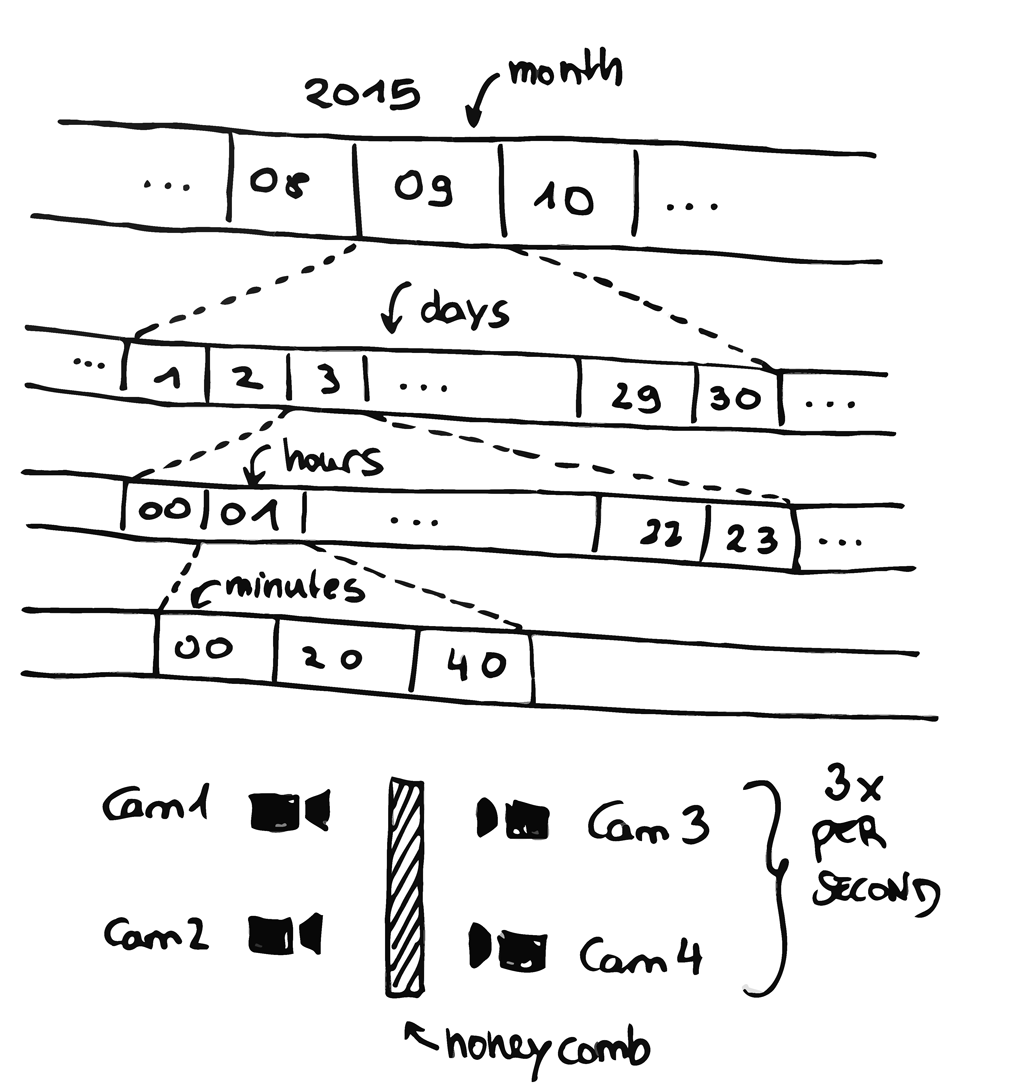 2015 month
... 08 09 10 ...
days
... 1 2 3 ... 29 30 ...
hours
00 01 ... 22 23 ...
minutes
00 20 40
Cam1 Cam 3 3x
PER
SECOND
Cam2 Cam 4
honey comb